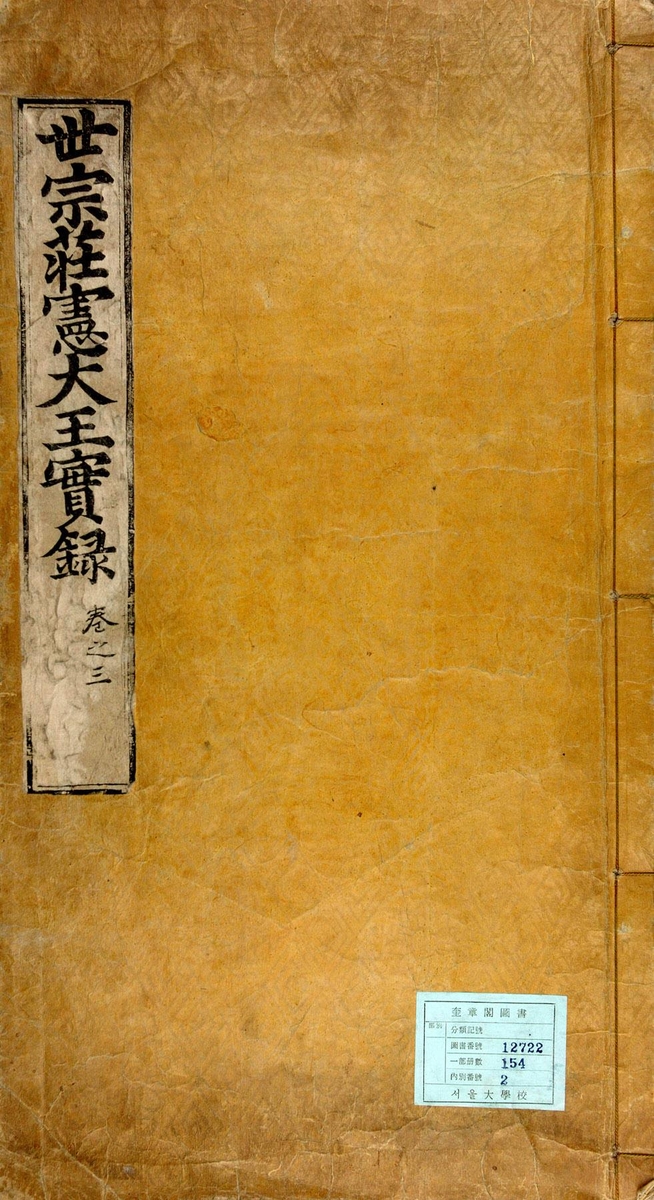 世宗莊憲大王實録
卷之三
奎章閣圖書
分類記號
圖書番號 12722
一部冊數 154
內別番號 2
서울大學校